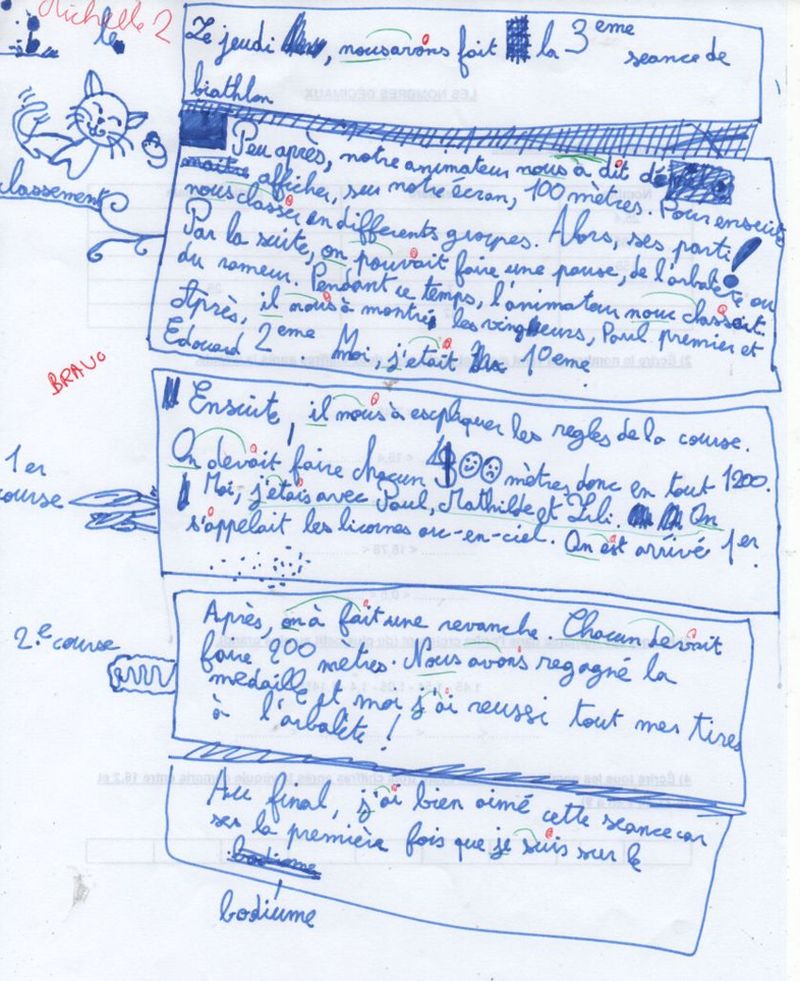 Michelle 2
le
Le jeudi, nous avons fait la 3eme
seance de
biathlon
classement
Peu après, notre animateur nous à dit d'
afficher, sur notre écran, 100 mètres. Pour ensuite
nous classer en différents groupes. Alors, ses parti!
Par la suite, on pouvait faire une pause, de l'arbalète ou
du rameur. Pendant ce temps, l'animateur nous classait.
Après, il nous à montré les vingueurs, Paul premier et
Edouard 2eme Moi, j'etait 10eme
BRAVO
Ensuite, il nous à expliquer les regles de la course.
On devait faire chacun 400 mètres donc en tout 1200.
1er
course
Moi, j'étais avec Paul, Mathilde et Lili. On
s'appelait les licornes arc-en-ciel. On est arrivé 1er.
2.e course
Après, on à fait une revanche. Chacun devait
faire 200 metres. Nous avons regagné la
medaille et moi j'ai reussi tout mes tires
à l'arbalète!
Au final, j'ai bien aimé cette seance car
ses la première fois que je suis sur le
bodiume